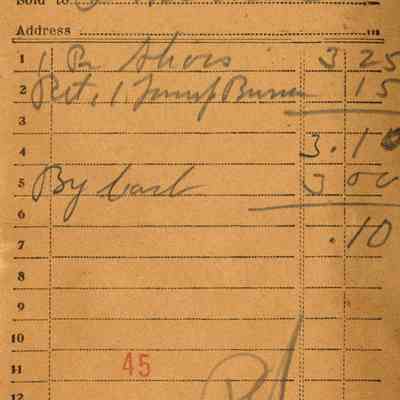 Sold to
Address
1 1 Pr Shoes 3 25
2 Ret. 1 Lamp Burner 15
3
4 3.10
5 By Cash 3 00
6
7 .10
8
9
10
11 45
12 Pd